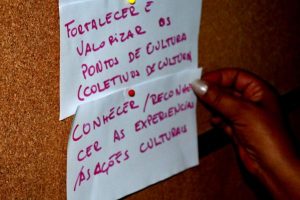 FORTALECER E
VALORIZAR OS
PONTOS DE CULTURA
(COLETIVOS DE CULTURA)
CONHECER/RECONHE
CER AS EXPERIENCIAS
/AS AÇÕES CULTURAIS